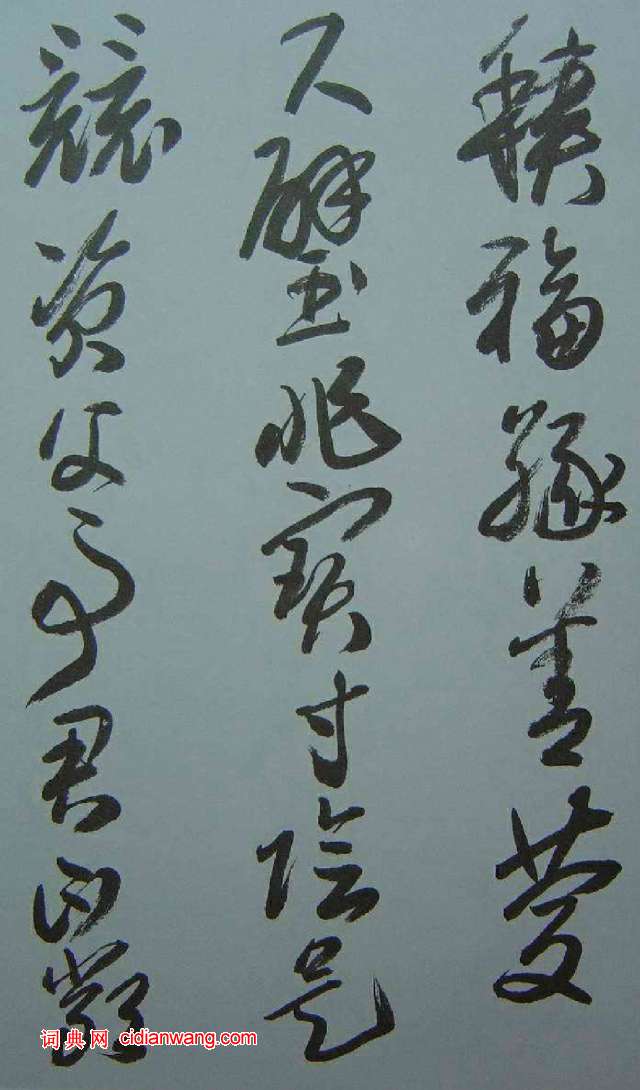 積福緣善慶
尺璧非寶寸陰是
競資父事君曰嚴
词典网 cidianwang.com